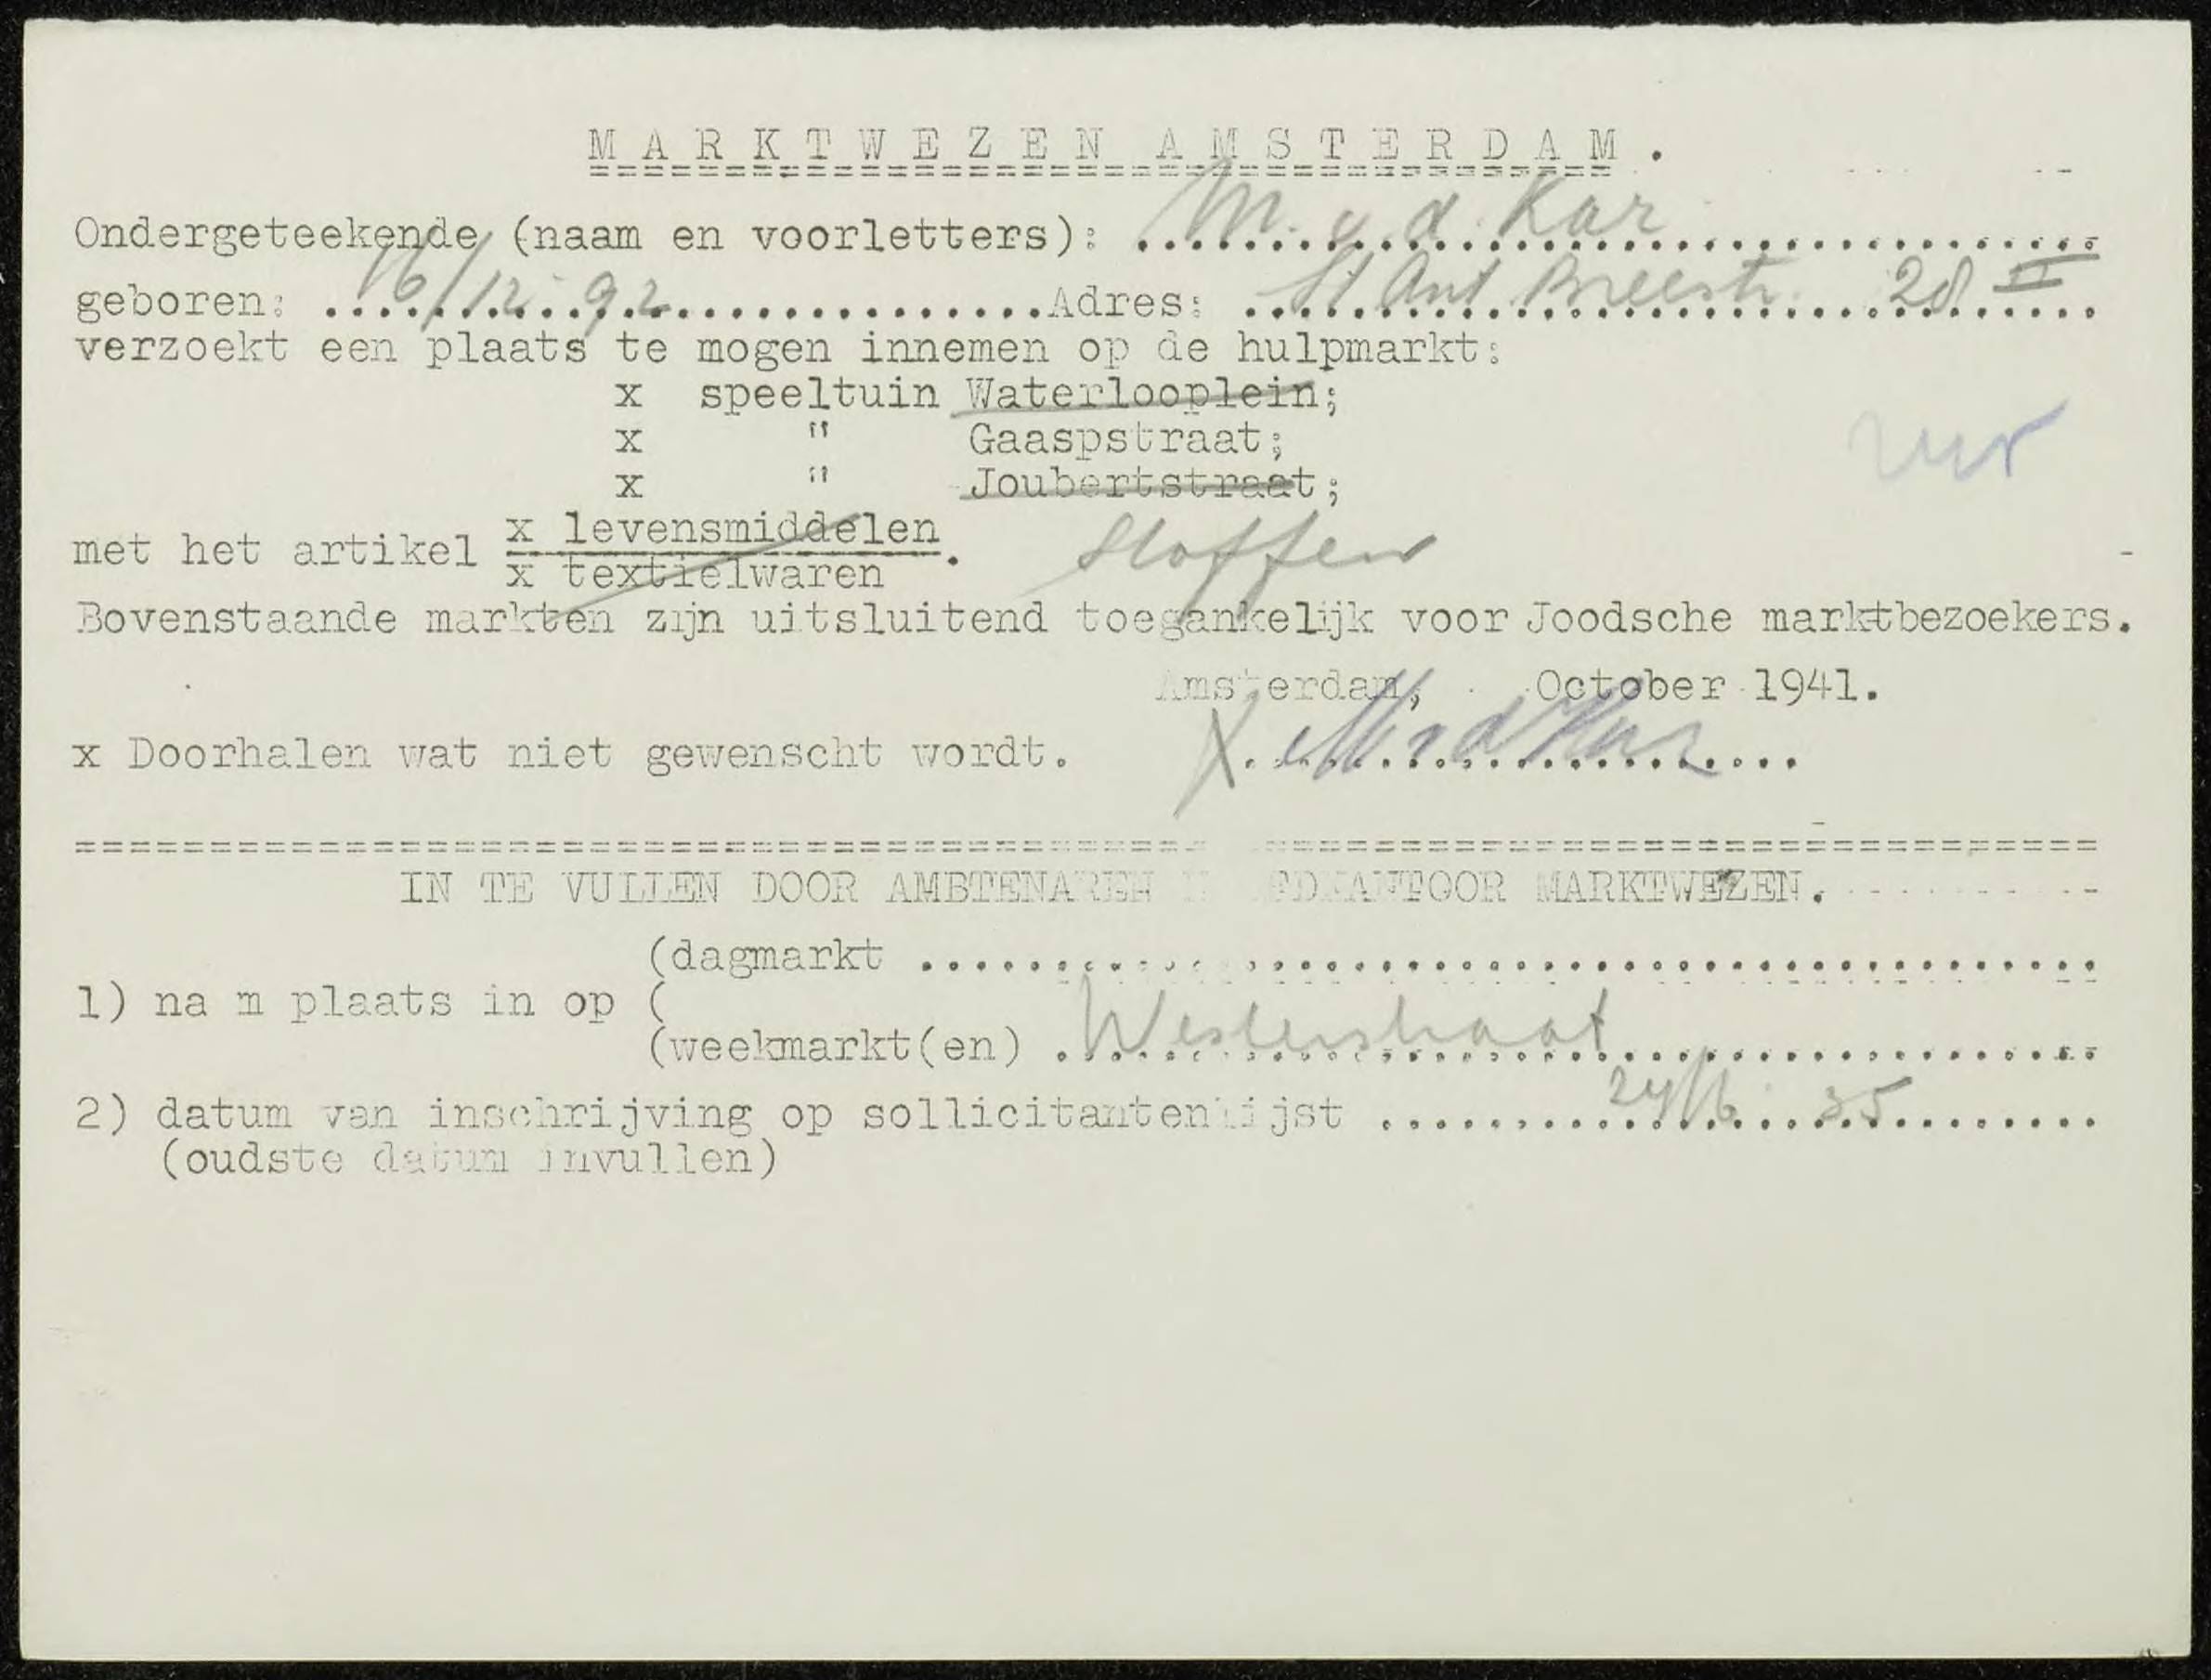 MARKTWEZEN AMSTERDAM.
Ondergeteekende (naam en voorletters): M. v. d. Kar
geboren: 16/12 92 Adres: St Ant Breestr. 28 II
verzoekt een plaats te mogen innemen op de hulpmarkt:
x speeltuin Waterlooplein;
x " Gaaspstraat;
x " Joubertstraat;
met het artikel x levensmiddelen
x textielwaren. Stoffen
Bovenstaande markten zijn uitsluitend toegankelijk voor Joodsche marktbezoekers.
Amsterdam, October 1941.
x Doorhalen wat niet gewenscht wordt. X M v d Kar
IN TE VULLEN DOOR AMBTENAREN HOOFDKANTOOR MARKTWEZEN.
(dagmarkt
1) na m plaats in op (
(weekmarkt(en) Westerstraat
2) datum van inschrijving op sollicitantenlijst 24/6 35
(oudste datum invullen)